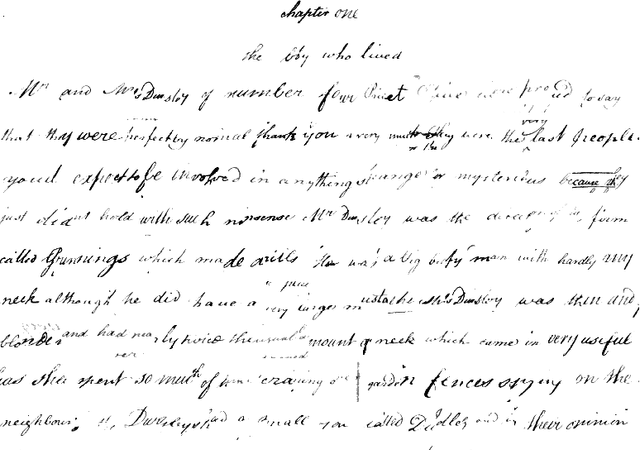 chapter one
the boy who lived
Mr and Mrs Dursley of number four Privet Drive were proud to say
that they were perfectly normal thank you very much they were the very last people
youd expect to be involved in anything strange or mysterious because they
just didnt hold with such nonsense Mr Dursley was the director of a firm
called Grunnings which made drills He was a big beefy man with hardly any
neck although he did have a very large mustache Mrs Dursley was thin and
blonde and had nearly twice the usual amount of neck which came in very useful
as she spent so much of time craning over garden fences spying on the
neighbours Dursleys had a small son called Dudley and in their opinion